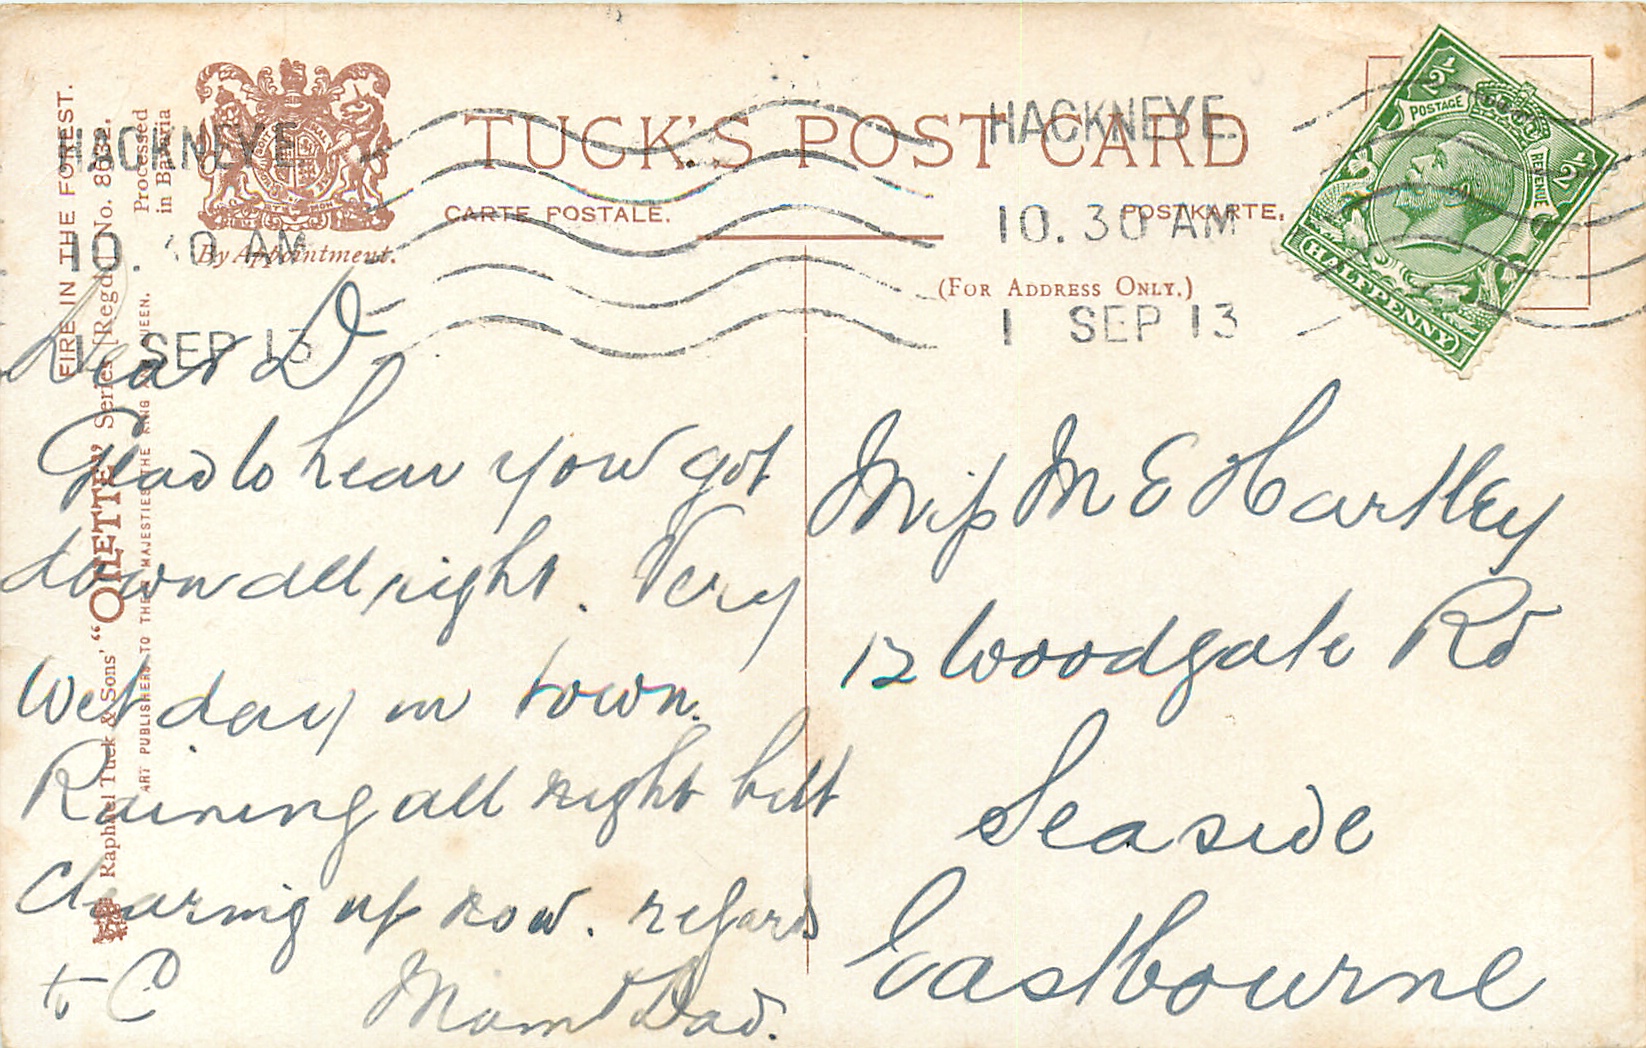 FIRE IN THE FOREST.
Raphael Tuck & Sons' "OILETTE" Series [Regd.] No. 8632.
ART PUBLISHERS TO THEIR MAJESTIES THE KING AND QUEEN.
Processed
in Bavaria
By Appointment.
TUCK'S POST CARD
CARTE POSTALE. POSTKARTE.
(For Address Only.)
HACKNEY E.
10. 30 AM
1 SEP 13
HACKNEY E.
10.30 AM
1 SEP 13
POSTAGE
REVENUE
½
½
HALFPENNY
Dear D
Glad to hear you got
down all right. Very
Wet day in town.
Raining all night but
Clearing up now. regards
to C Mum & Dad.
Miss M E Hartley
12 Woodgate Rd
Seaside
Eastbourne